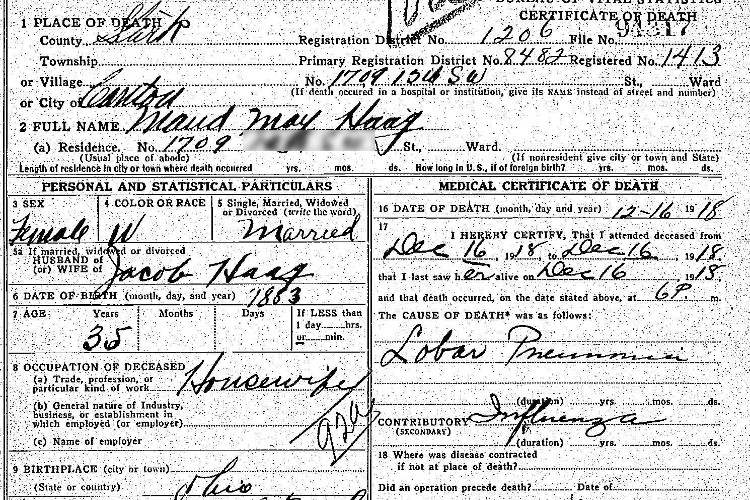 BUREAU OF VITAL STATISTICS
CERTIFICATE OF DEATH
1 PLACE OF DEATH
County Stark Registration District No. 1206 File No. 94317
Township Primary Registration District No. 8482 Registered No. 1413
or Village No. 1709 13th SW St., Ward
(If death occured in a hospital or institution, give its NAME instead of street and number)
or City of Canton
2 FULL NAME Maud May Haag
(a) Residence. No. 1709 St., Ward.
(Usual place of abode) (If nonresident give city or town and State)
Length of residence in city or town where death occurred yrs. mos. ds. How long in U.S., if of foreign birth? yrs. mos. ds.
PERSONAL AND STATISTICAL PARTICULARS
3 SEX 4 COLOR OR RACE 5 Single, Married, Widowed
or Divorced (write the word)
Female W Married
5a If married, widowed or divorced
HUSBAND of
(or) WIFE of Jacob Haag
6 DATE OF BIRTH (month, day, and year) 1883
7 AGE Years Months Days If LESS than
1 day......hrs.
or......min.
35
8 OCCUPATION OF DECEASED
(a) Trade, profession, or
particular kind of work Housewife
(b) General nature of Industry,
business, or establishment in
which employed (or employer)
(c) Name of employer
9 BIRTHPLACE (city or town)
(State or country) Ohio
MEDICAL CERTIFICATE OF DEATH
16 DATE OF DEATH (month, day and year) 12-16 1918
17
I HEREBY CERTIFY, That I attended deceased from
Dec 16, 1918, to Dec 16, 1918.
that I last saw her alive on Dec 16, 1918.
and that death occurred, on the date stated above, at 6P. m.
The CAUSE OF DEATH* was as follows:
Lobar Pneumonia
(duration) yrs. mos. ds.
CONTRIBUTORY Influenza
(SECONDARY)
(duration) yrs. mos. ds.
18 Where was disease contracted
if not at place of death?
Did an operation precede death? Date of